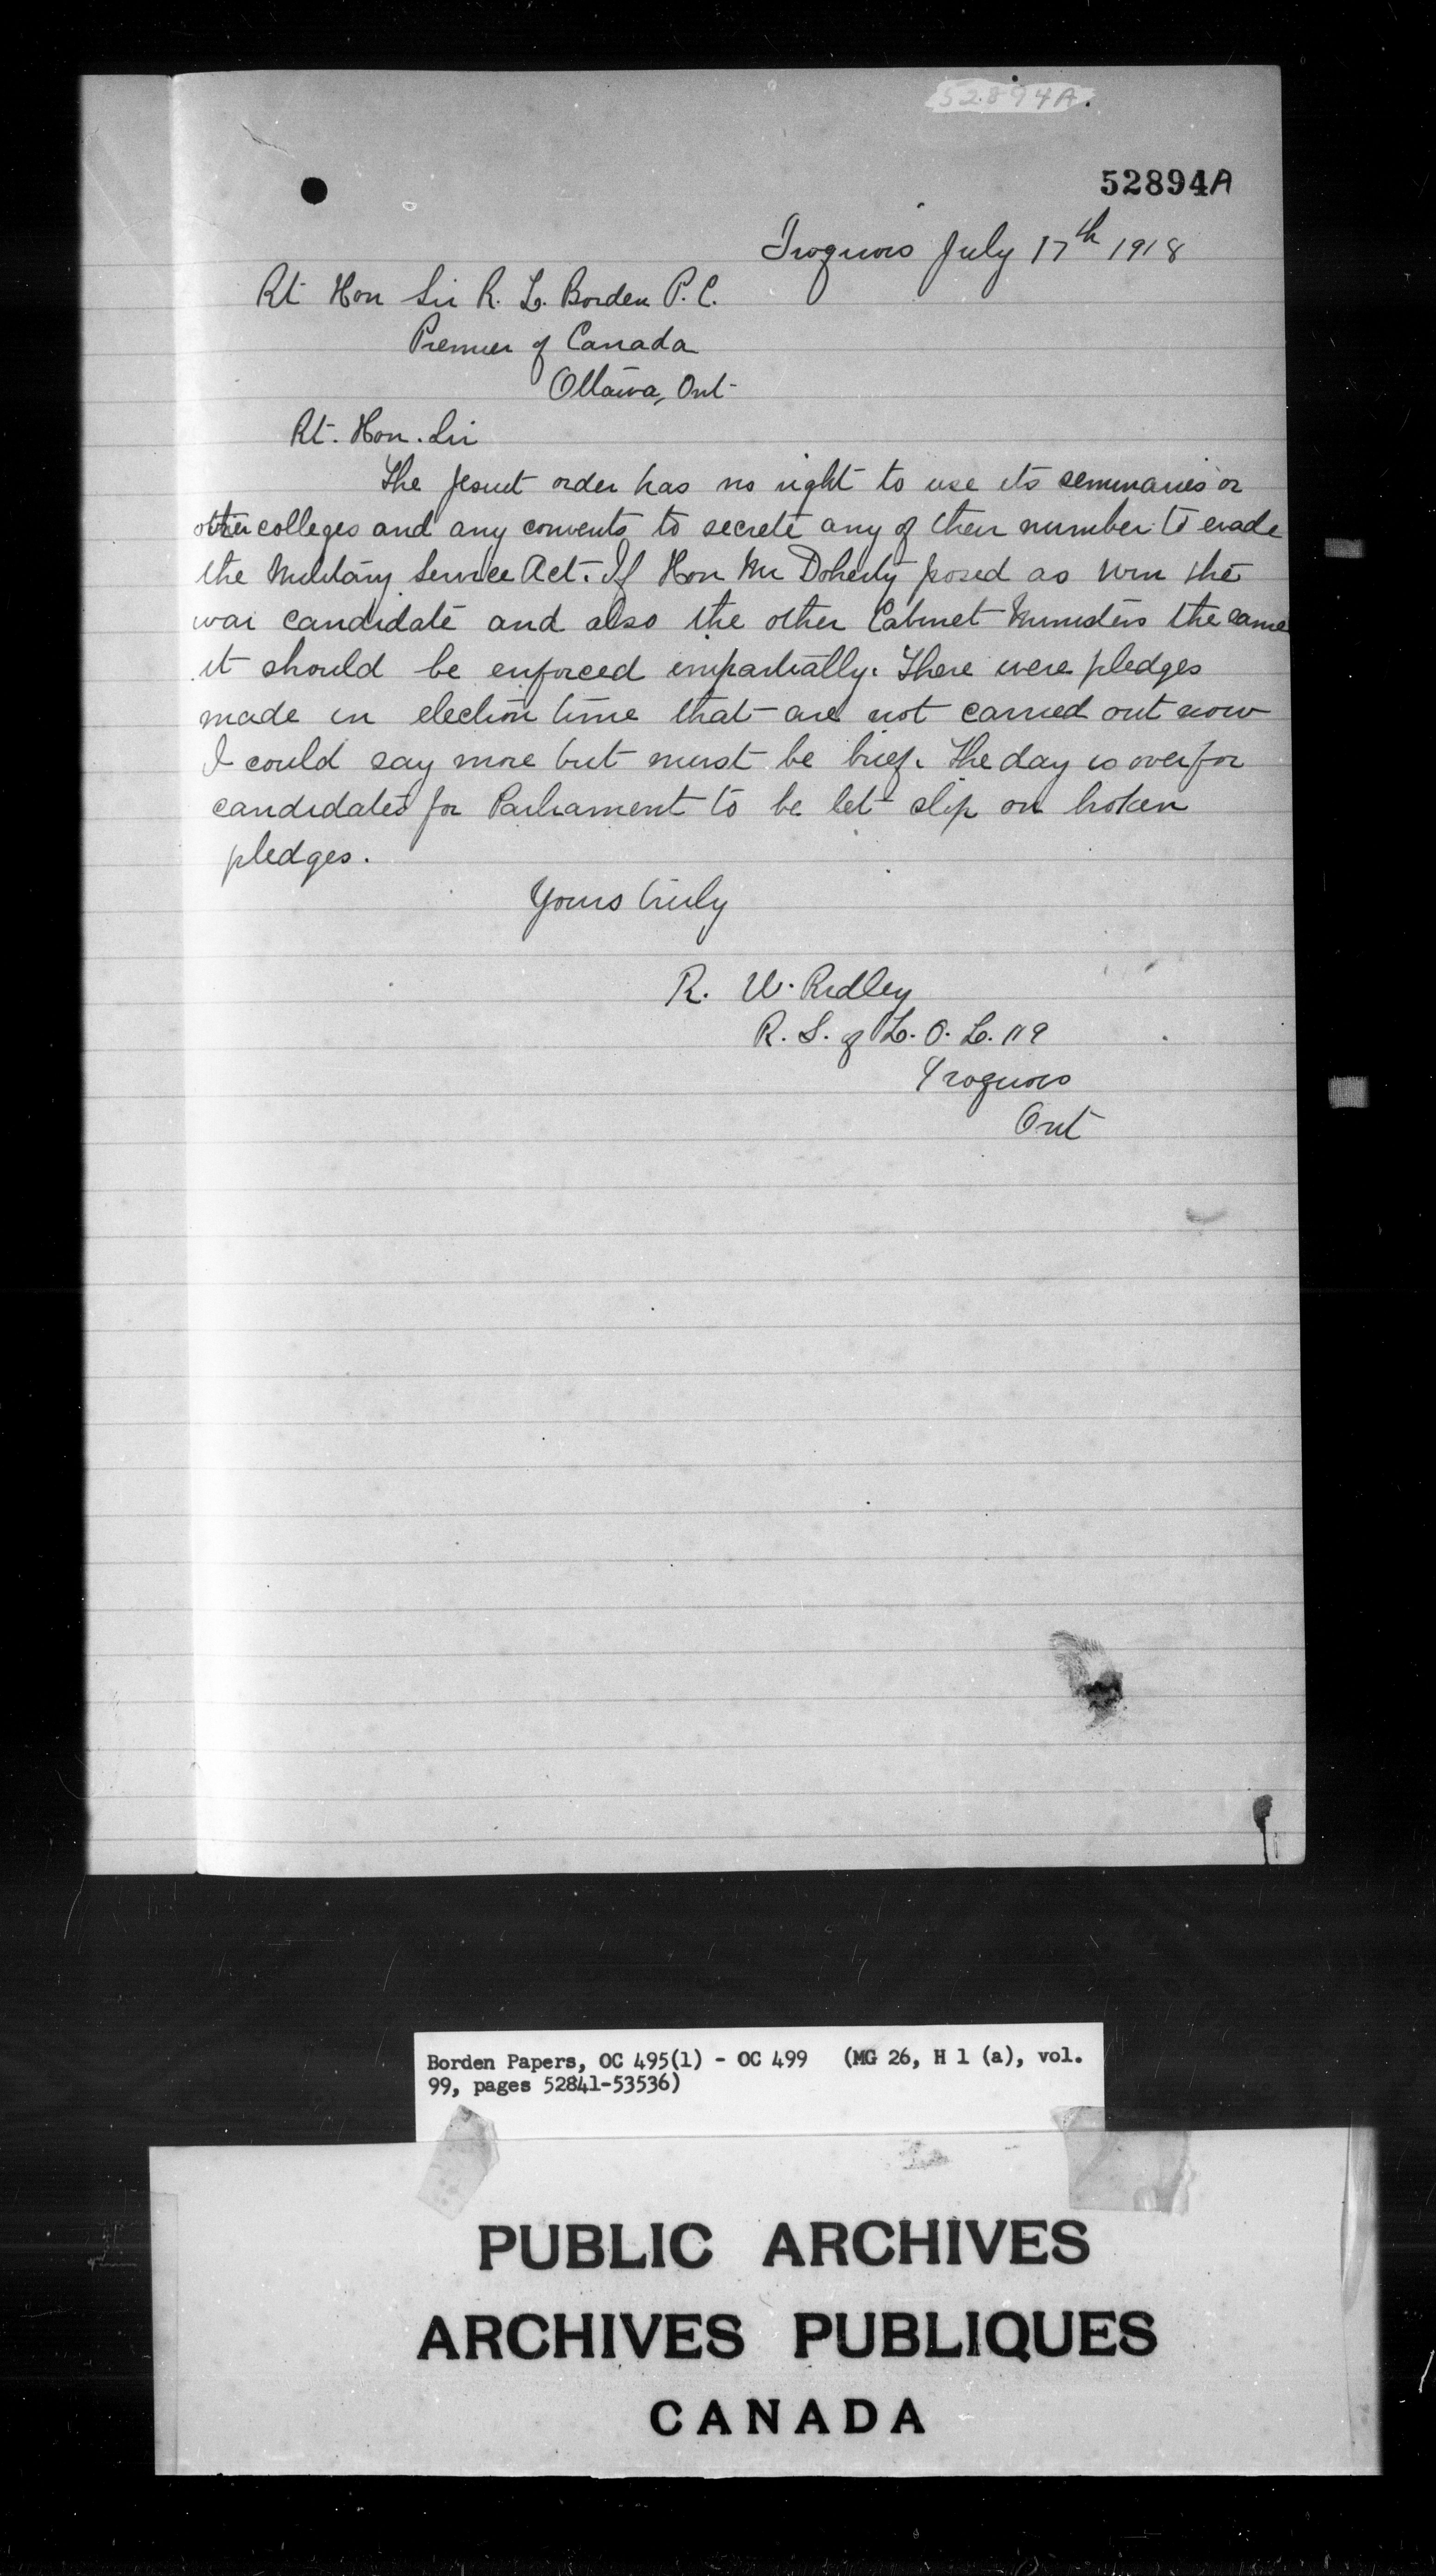 52894A.
52894A
Iroquois July 17th 1918
Rt Hon Sir R. L. Borden P. C.
Premier of Canada
Ottawa, Ont
Rt. Hon. Sir
The Jesuit order has no right to use its seminaries or
other colleges and any convents to secrete any of their number to evade
the Military Service Act. If Hon Mr Doherty posed as win the
war candidate and also the other Cabinet Ministers the same
it should be enforced impartially. There were pledges
made in election time that are not carried out now
I could say more but must be brief. The day is over for
candidates for Parliament to be let slip on broken
pledges.
Yours truly
R. W. Ridley
R. S. of L. O. L. 119
Iroquois
Ont
Borden Papers, OC 495(1) - OC 499 (MG 26, H 1 (a), vol.
99, pages 52841-53536)
PUBLIC ARCHIVES
ARCHIVES PUBLIQUES
CANADA